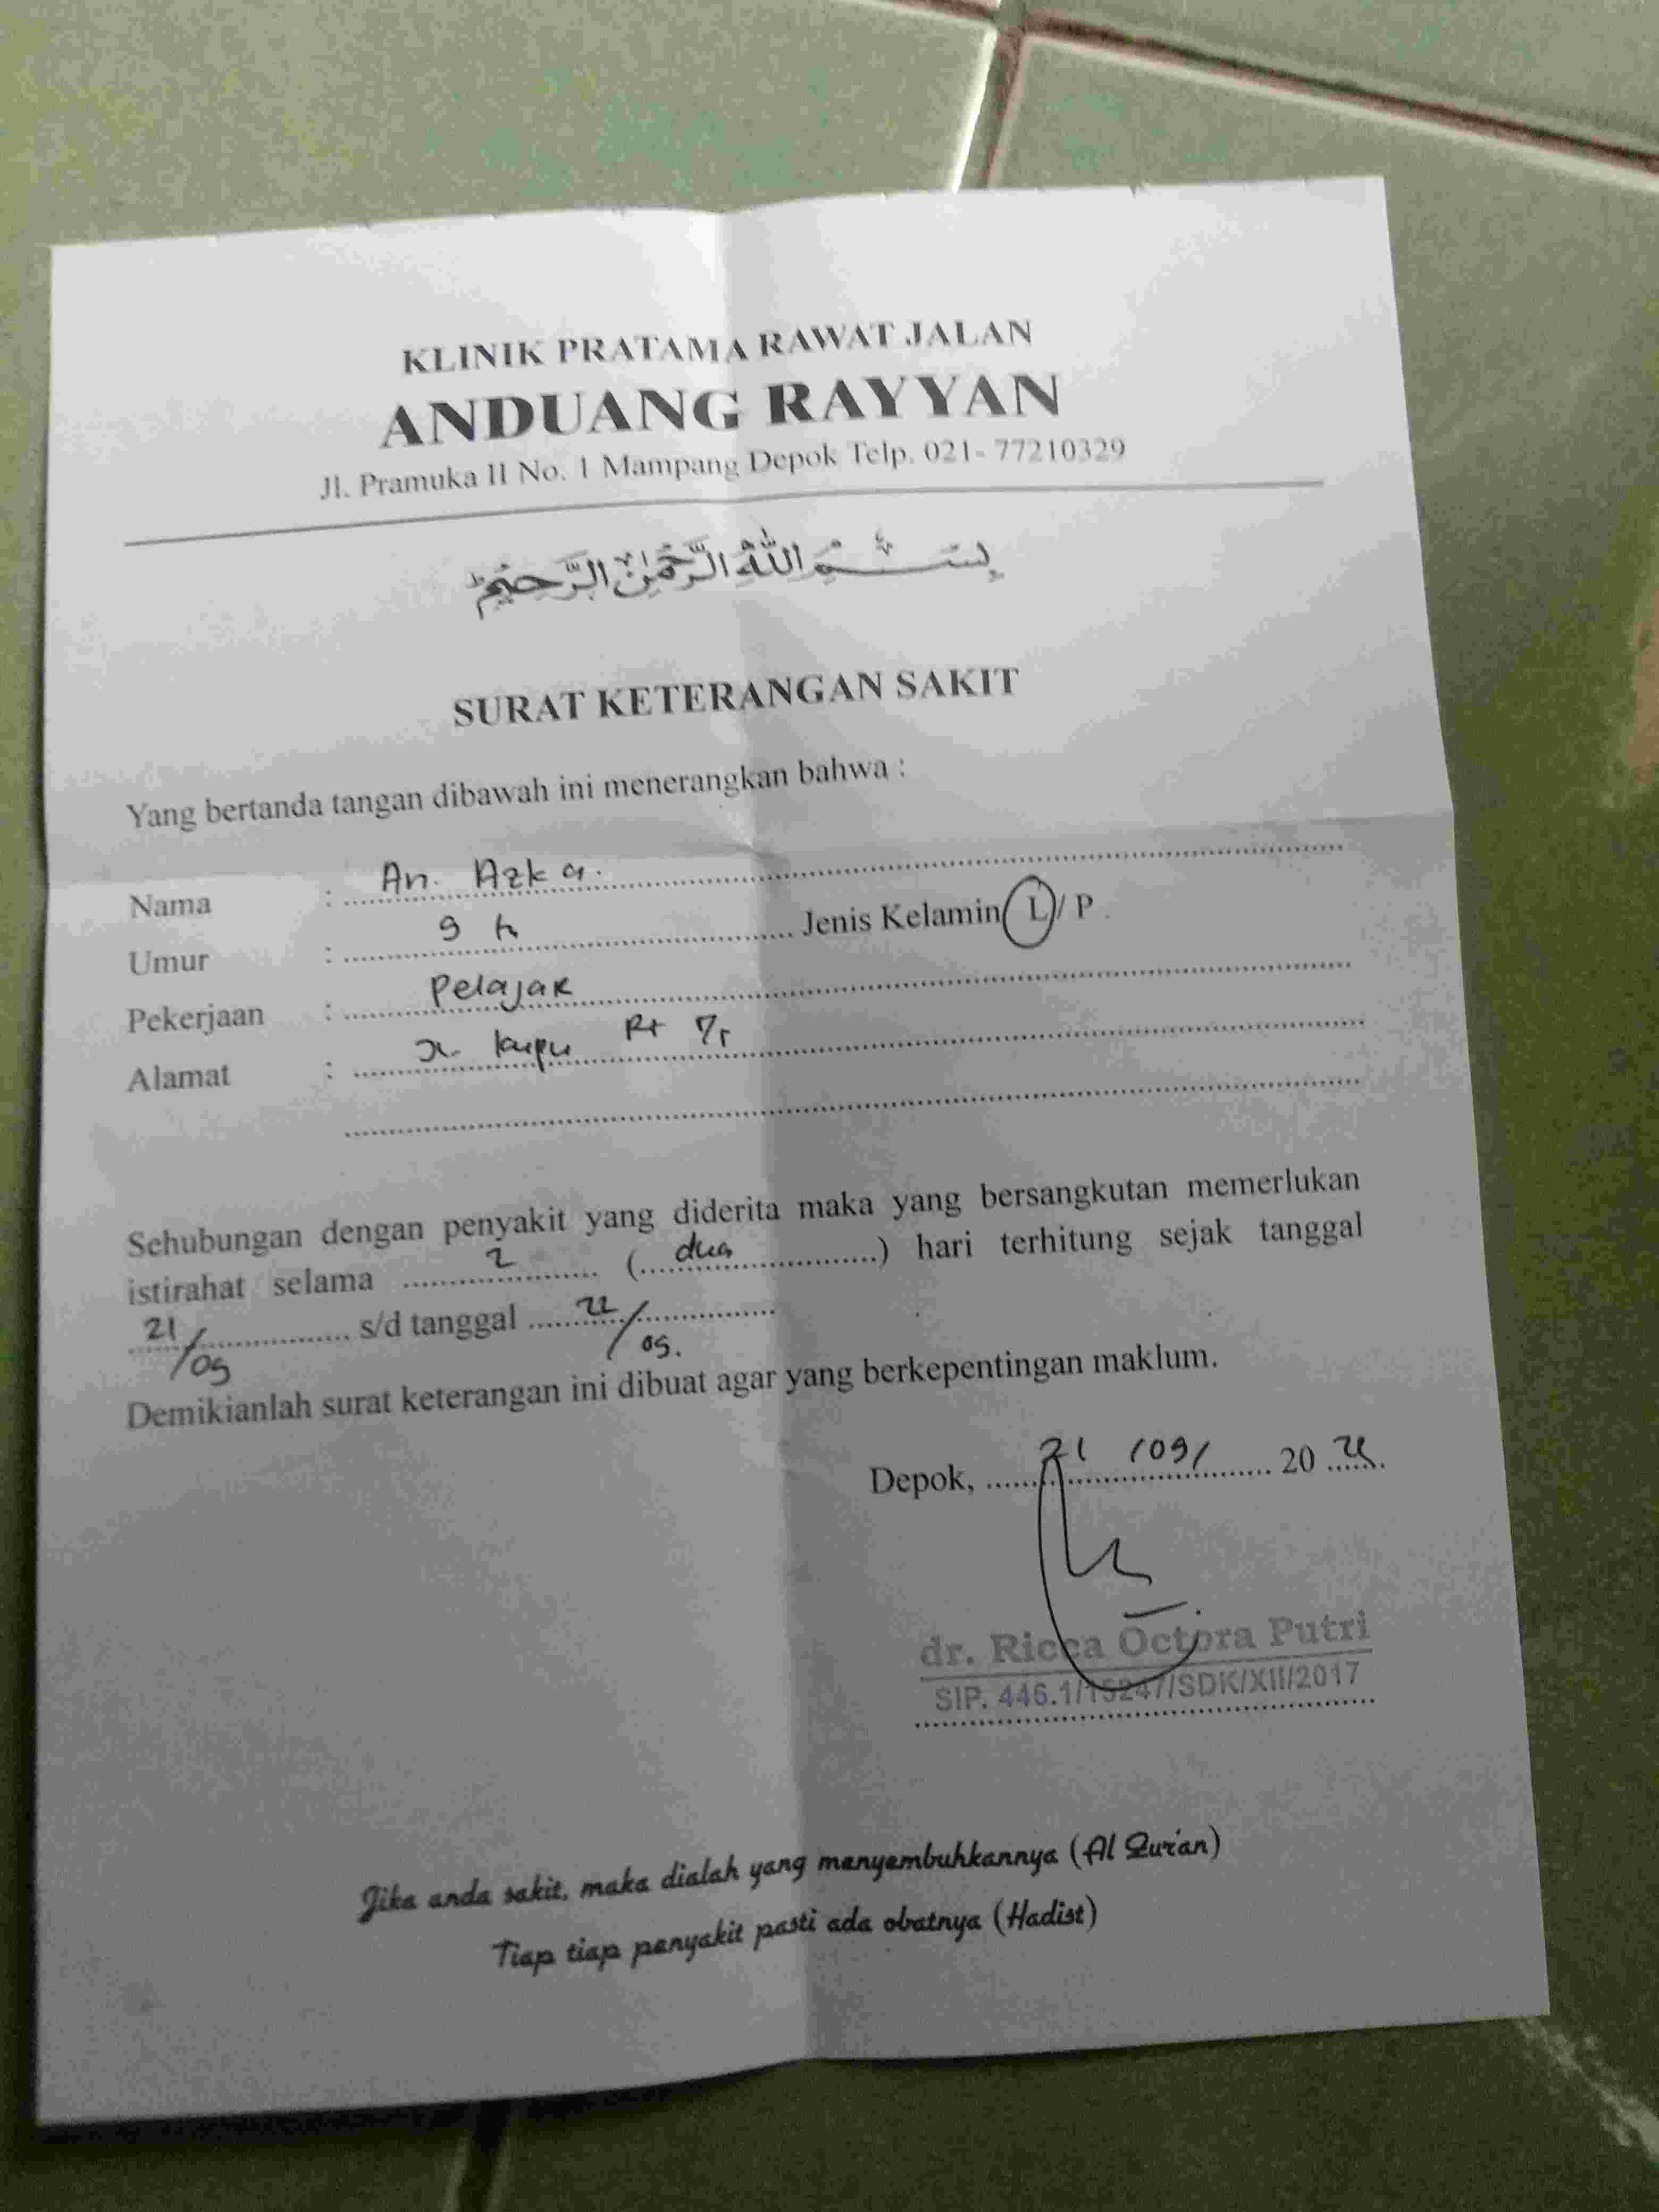 KLINIK PRATAMA RAWAT JALAN
ANDUANG RAYYAN
Jl. Pramuka II No. 1 Mampang Depok Telp. 021- 77210329
بِسْمِ اللهِ الرَّحْمٰنِ الرَّحِيْمِ
SURAT KETERANGAN SAKIT
Yang bertanda tangan dibawah ini menerangkan bahwa :
Nama : An. Azka.
Umur : 9 Jenis Kelamin L / P
Pekerjaan : Pelajar
Alamat : Rt
Sehubungan dengan penyakit yang diderita maka yang bersangkutan memerlukan
istirahat selama 2 (dua) hari terhitung sejak tanggal
21/09 s/d tanggal 22/09.
Demikianlah surat keterangan ini dibuat agar yang berkepentingan maklum.
Depok, 21 /09/ 20
dr. Ricca Octora Putri
SIP. 446.1/15247/SDK/XII/2017
Jika anda sakit, maka dialah yang menyembuhkannya (Al Qur'an)
Tiap tiap penyakit pasti ada obatnya (Hadist)